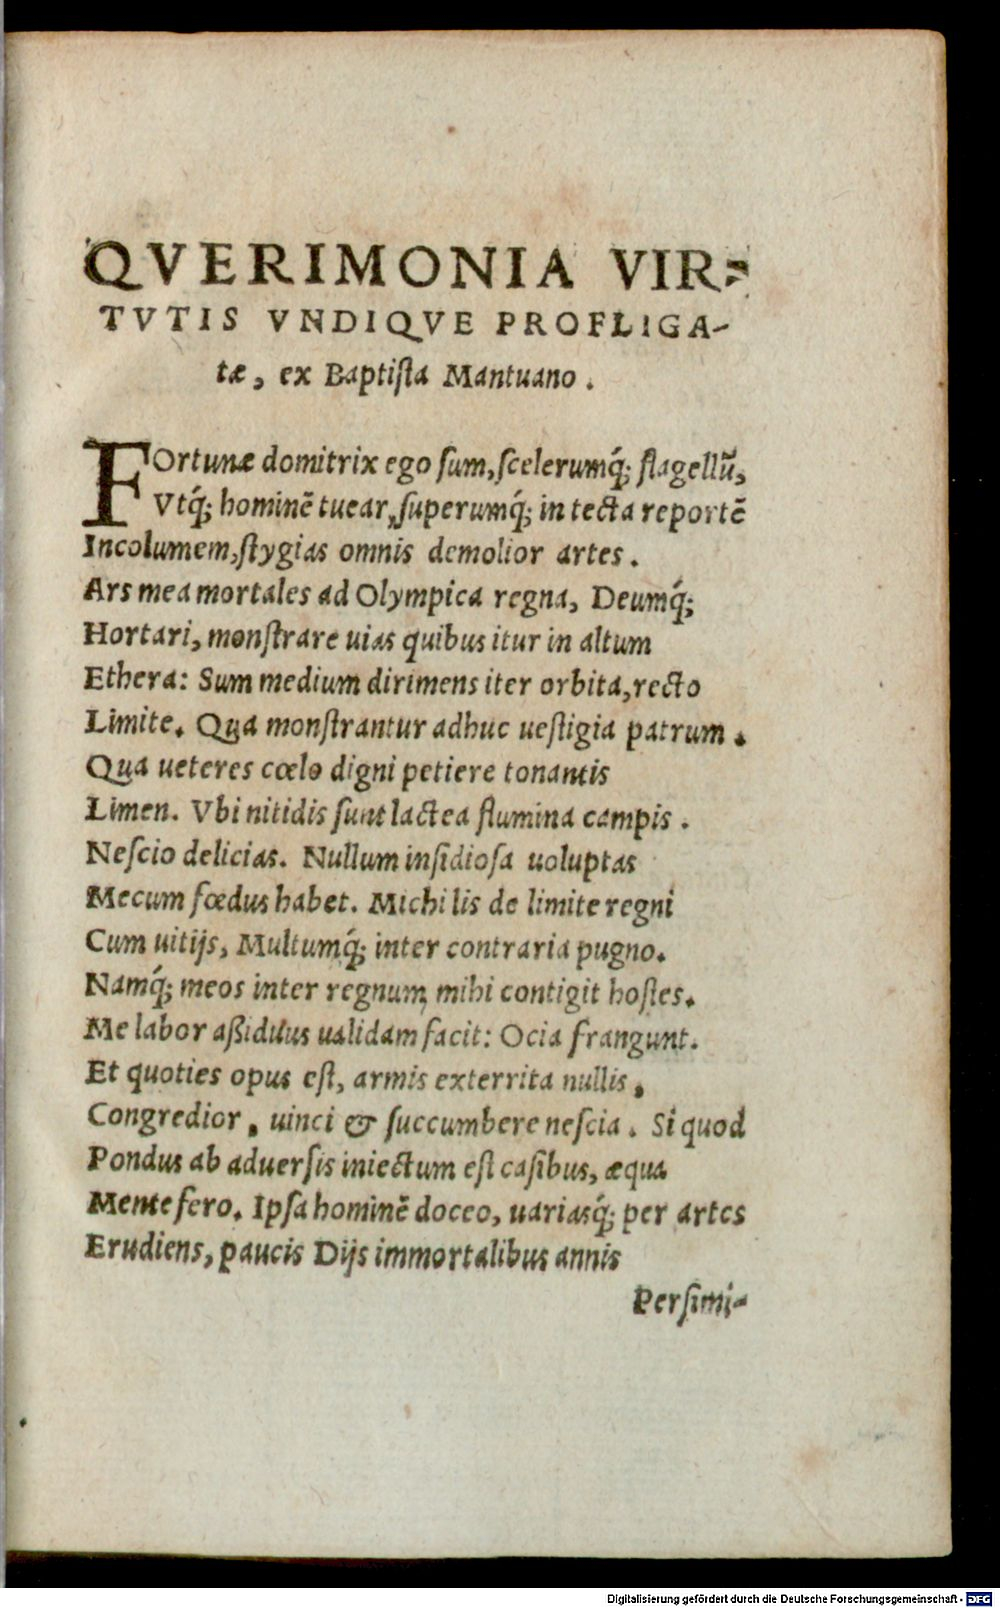 QVERIMONIA VIR-
TVTIS VNDIQVE PROFLIGA-
tæ, ex Baptiſta Mantuano.
FOrtunæ domitrix ego ſum, ſcelerumq́; flagellũ,
Vtq́; hominẽ tuear, ſuperumq́; in tecta reportẽ
Incolumem, ſtygias omnis demolior artes.
Ars mea mortales ad Olympica regna, Deumq́;
Hortari, monſtrare uias quibus itur in altum
Ethera: Sum medium dirimens iter orbita, recto
Limite. Qua monſtrantur adhuc ueſtigia patrum.
Qua ueteres cœlo digni petiere tonantis
Limen. Vbi nitidis ſunt lactea flumina campis.
Neſcio delicias. Nullum inſidioſa uoluptas
Mecum fœdus habet. Michi lis de limite regni
Cum uitijs, Multumq́; inter contraria pugno.
Namq́; meos inter regnum mihi contigit hoſtes.
Me labor aßiduus ualidam facit: Ocia frangunt.
Et quoties opus eſt, armis exterrita nullis,
Congredior, uinci & ſuccumbere neſcia. Si quod
Pondus ab aduerſis iniectum eſt caſibus, æqua
Mente fero. Ipſa hominẽ doceo, uariasq́; per artes
Erudiens, paucis Dijs immortalibus annis
Perſimi-
Digitalisierung gefördert durch die Deutsche Forschungsgemeinschaft - DFG